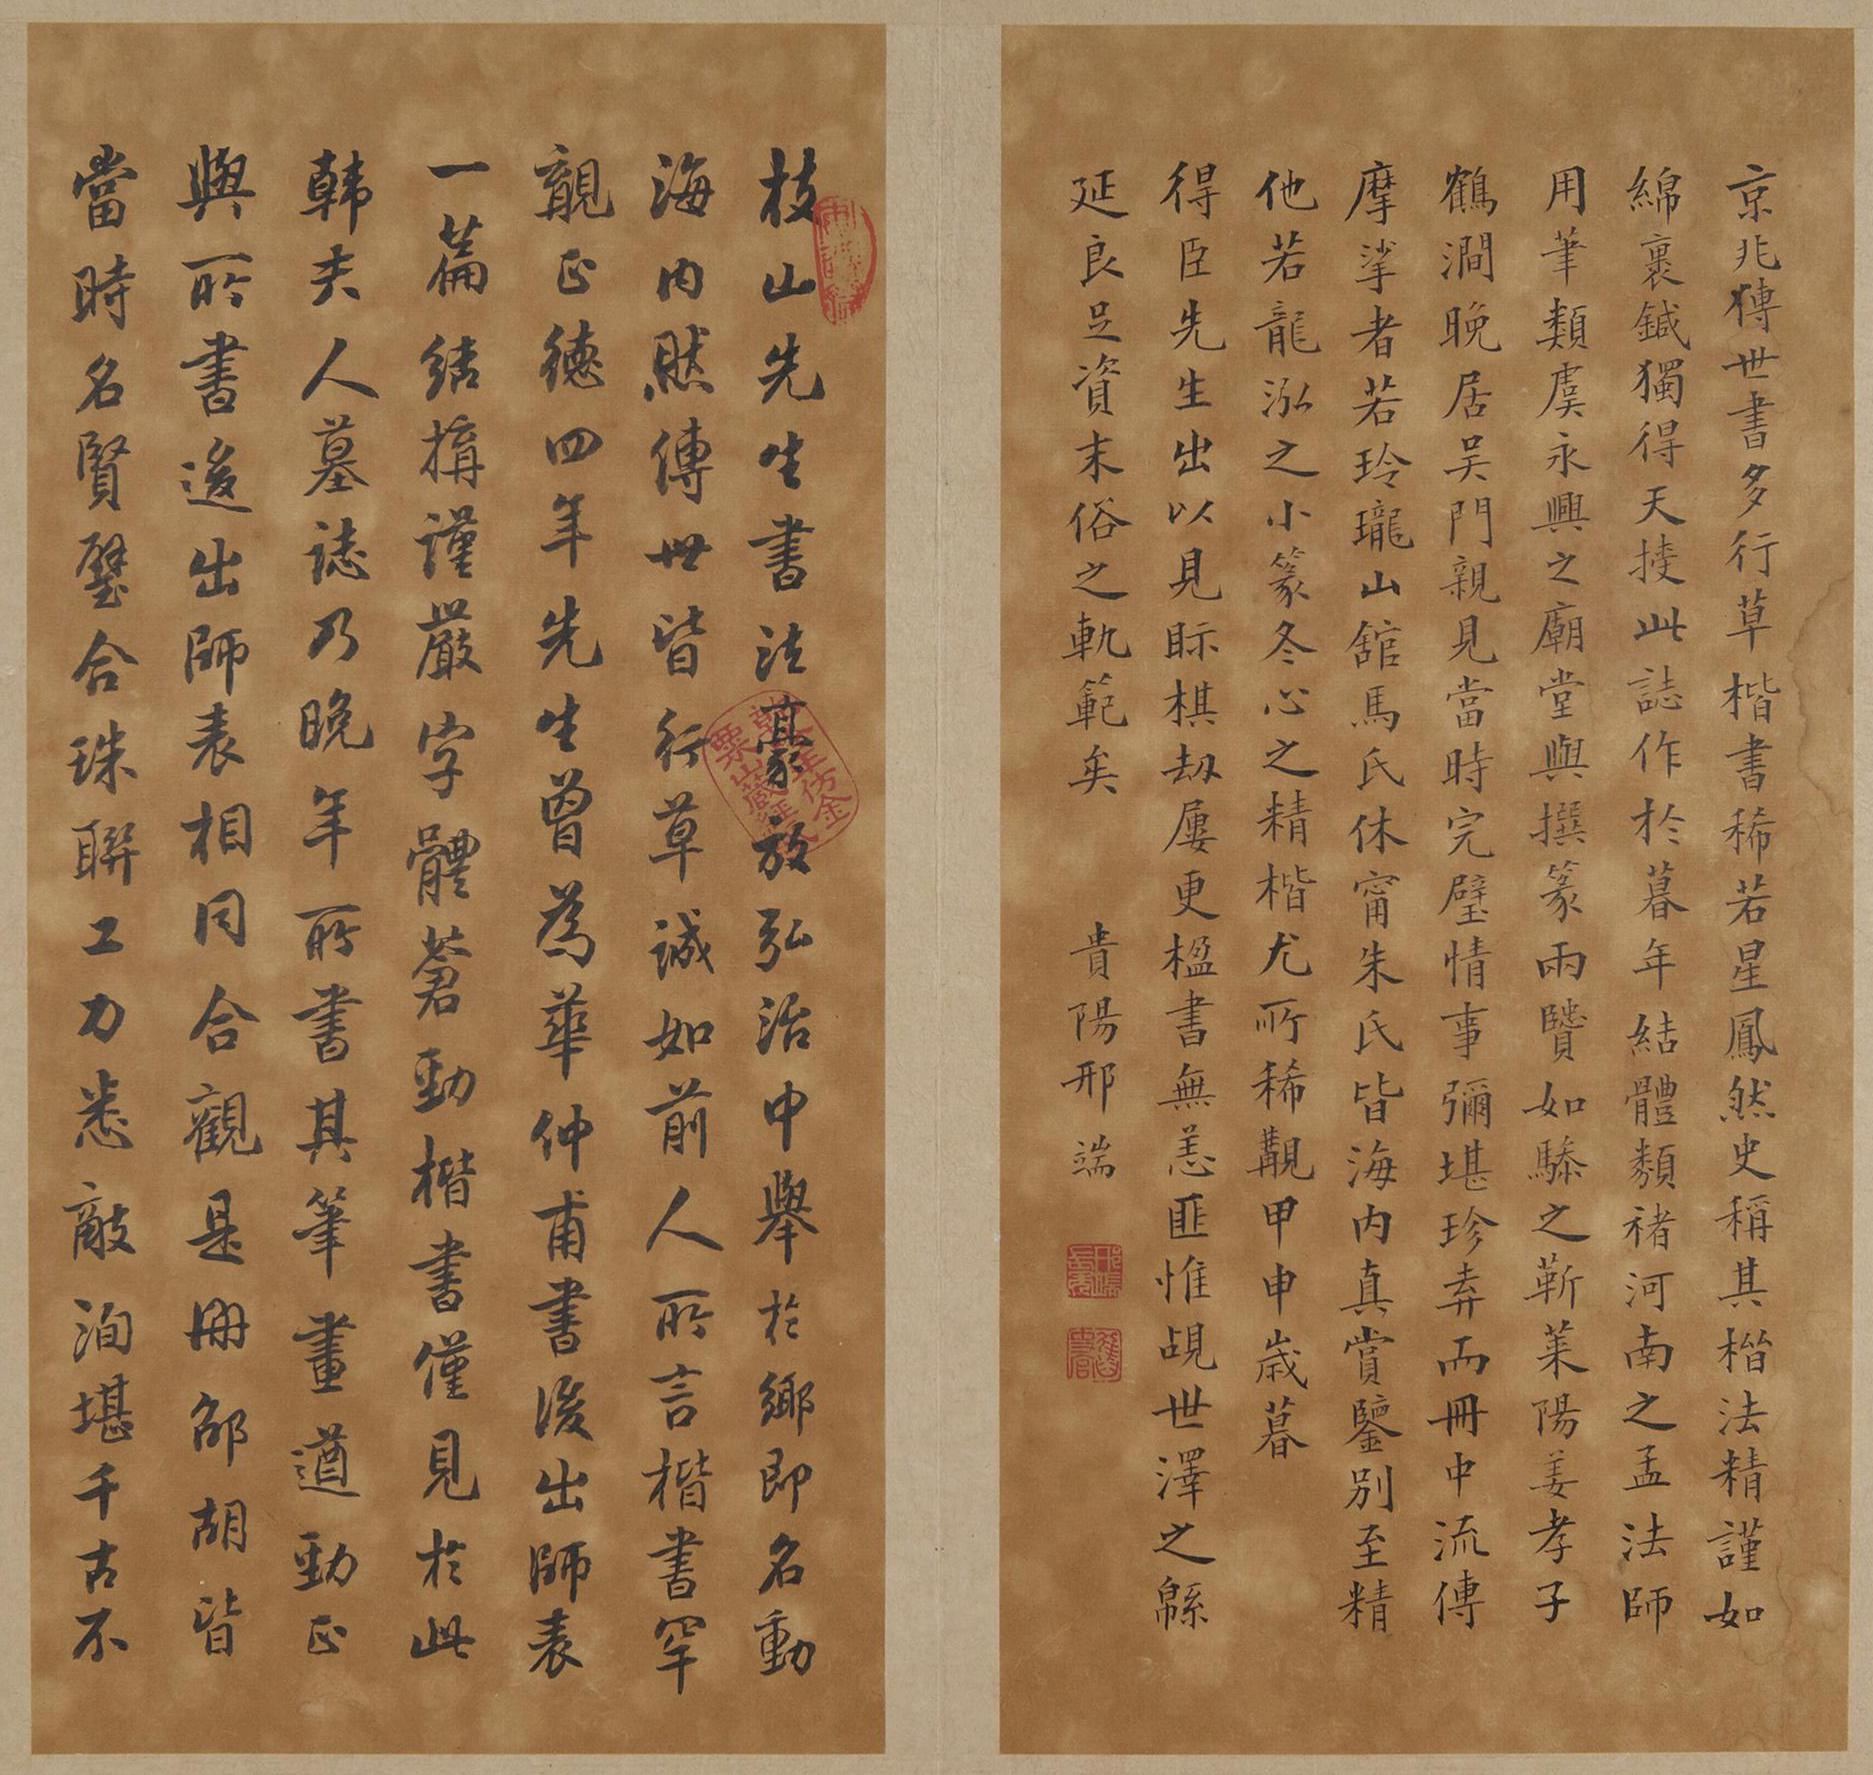 京兆傳世書多行草楷書稀若星鳳然史稱其楷法精謹如
綿裹鍼獨得天授此誌作於暮年結體類褚河南之孟法師
用筆類虞永興之廟堂與撰篆兩贒如驂之靳萊陽姜孝子
鶴澗晚居吴門親見當時完璧情事彌堪珍弆而冊中流傳
摩挲者若玲瓏山舘馬氏休甯朱氏皆海内真賞鑒别至精
他若龍泓之小篆冬心之精楷尤所稀覯甲申歲暮
得臣先生出以見眎棋劫屢更楹書無恙匪惟覘世澤之緜
延良足資末俗之軌範矣 貴陽邢端
枝山先生書法豪放弘治中舉於鄉即名動
海内然傳世皆行草誠如前人所言楷書罕
覯正德四年先生曾為華仲甫書後出師表
一篇結構謹嚴字體蒼勁楷書僅見於此
韩夫人墓誌乃晚年所書其筆畫遒勁正
與所書後出師表相同合觀是冊邵胡皆
當時名賢璧合珠聯工力悉敵洵堪千古不